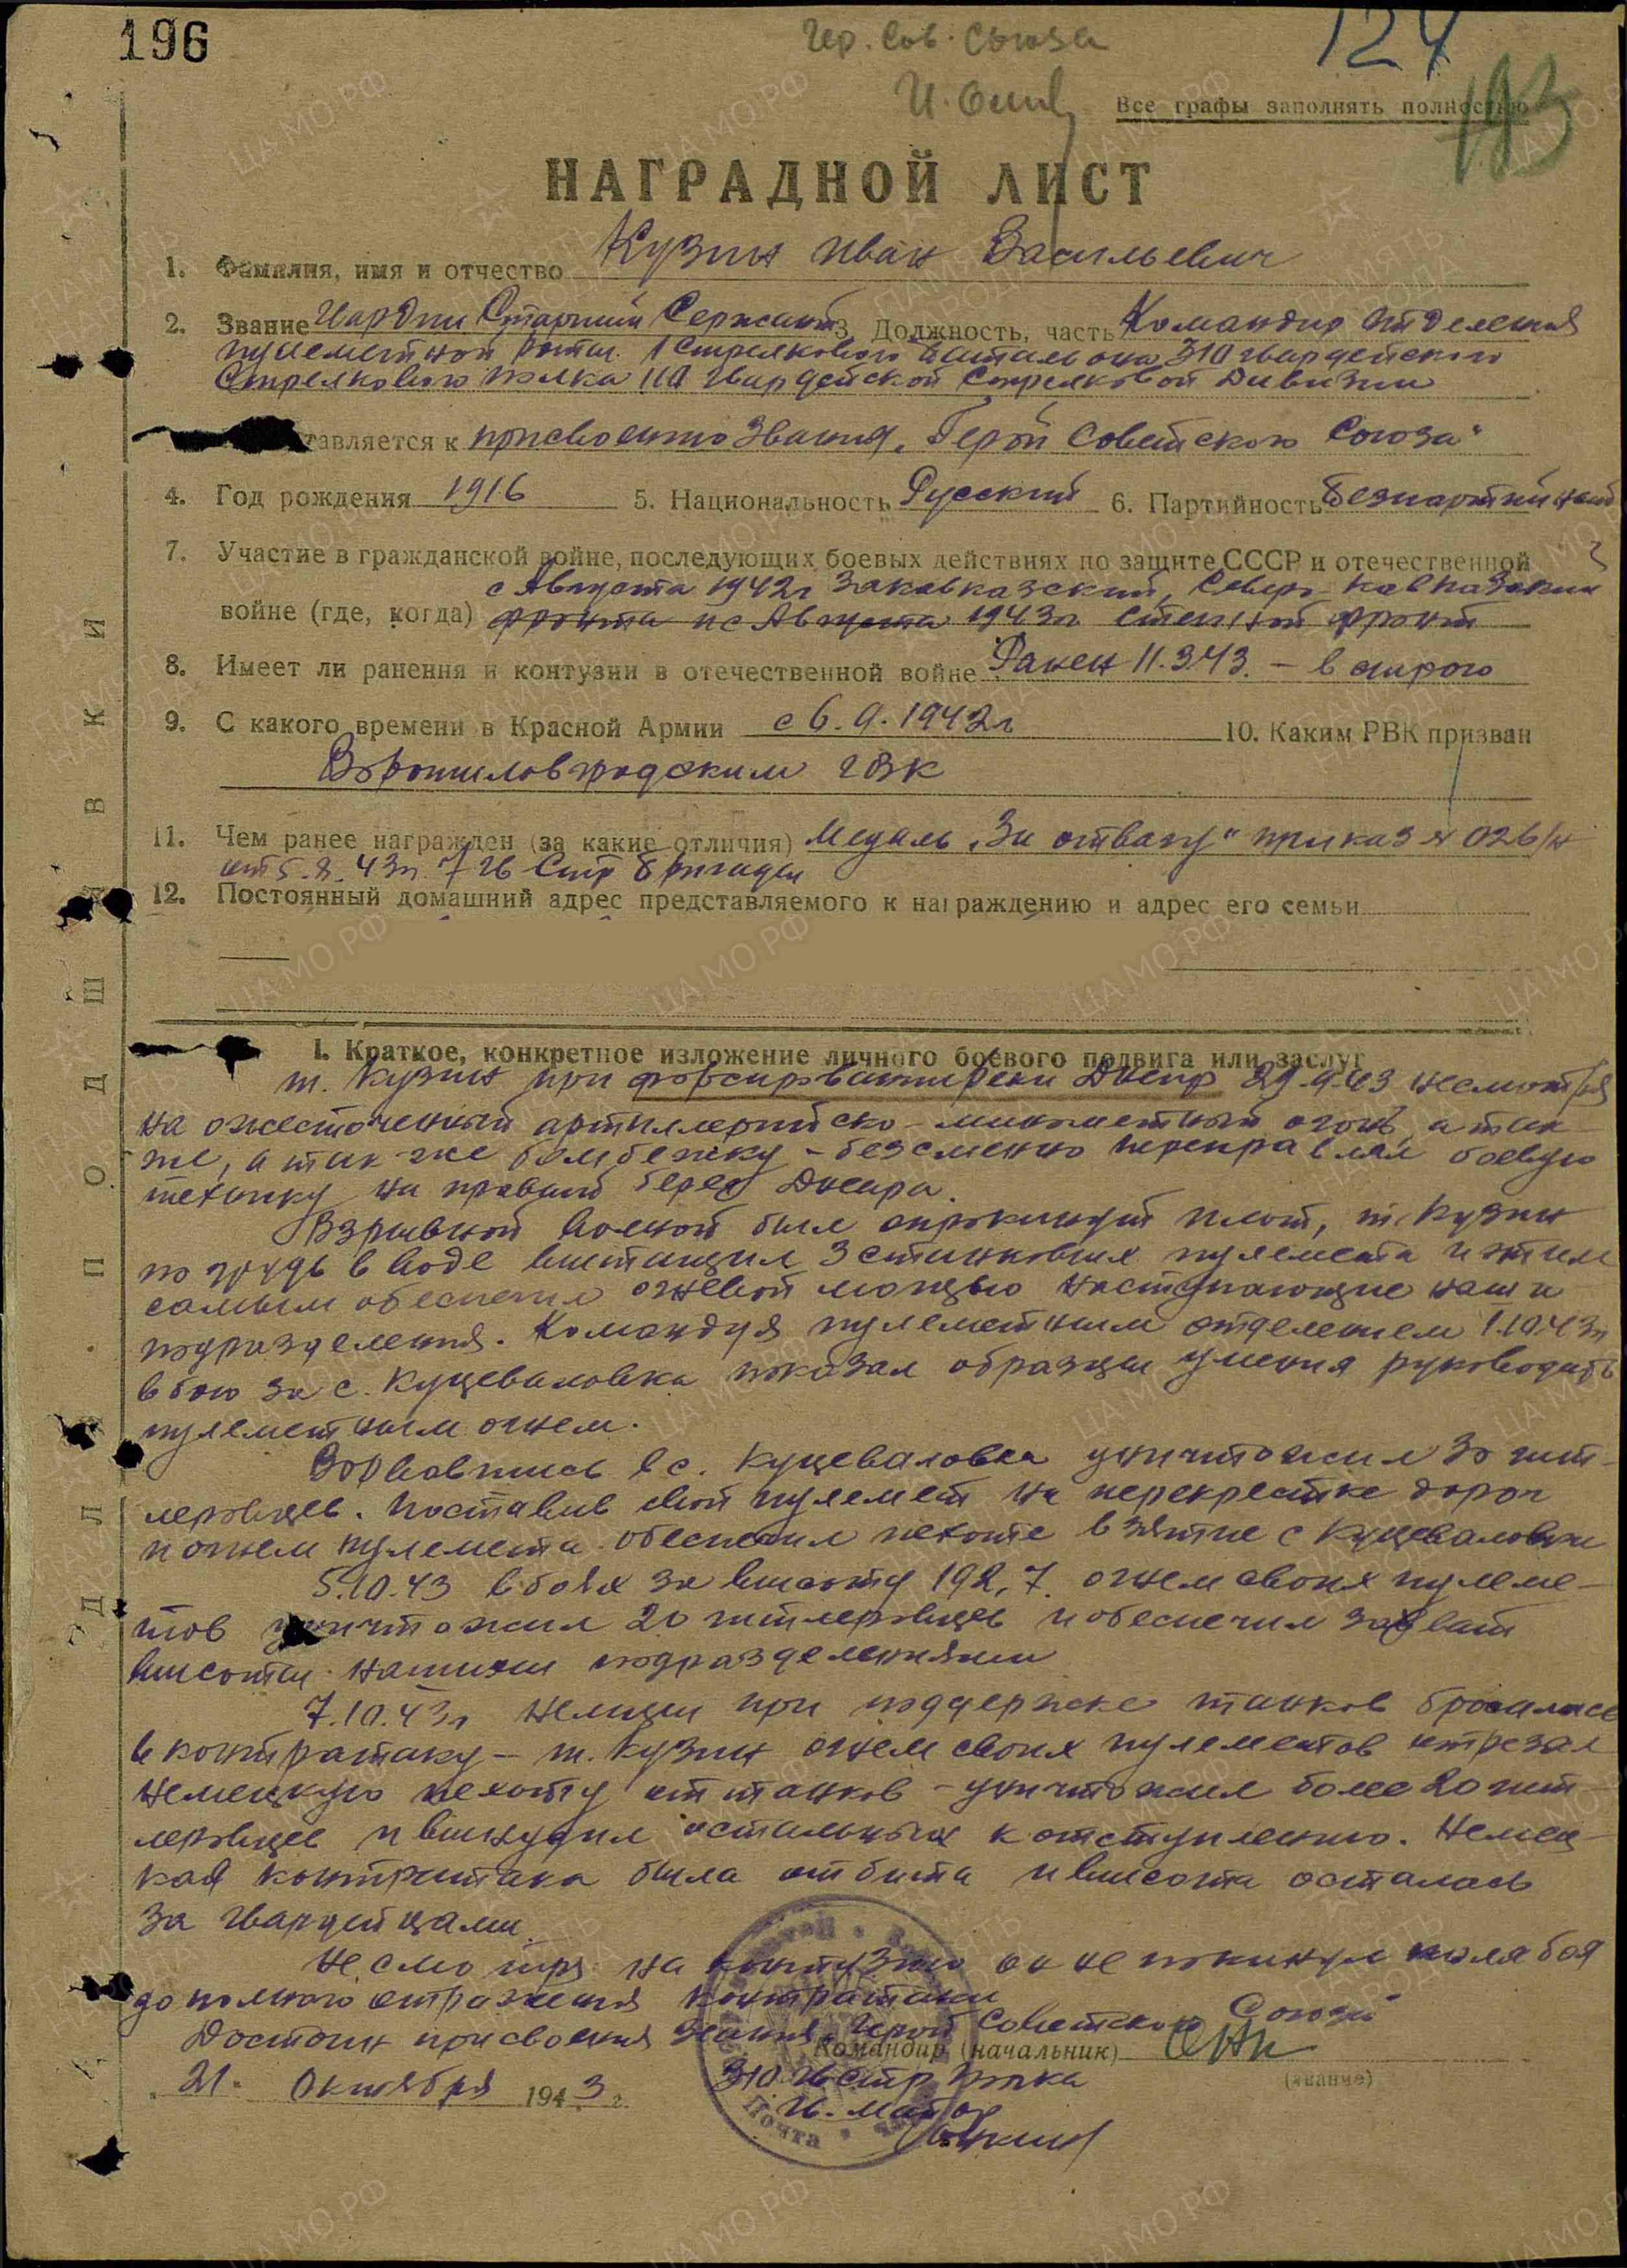 196
Гер. Сов. Союза
124
193
Все графы заполнять полностью
НАГРАДНОЙ ЛИСТ
1. Фамилия, имя и отчество Кузин Иван Васильевич
2. Звание Гвардии Старший Сержант 3. Должность, часть Командир отделения
пулеметной роты 1 стрелкового батальона 310 гвардейского
Стрелкового полка 110 Гвардейской Стрелковой Дивизии
тавляется к присвоению звания „Герой Советского Союза"
4. Год рождения 1916 5. Национальность Русский 6. Партийность Безпартийный
7. Участие в гражданской войне, последующих боевых действиях по защите СССР и отечественной
с Августа 1942г Закавказский, Северо-Кавказский
войне (где, когда) фронта и с Августа 1943г Степной фронт
8. Имеет ли ранения и контузии в отечественной войне Ранен 11.3.43. —
9. С какого времени в Красной Армии с 6.9.1942г 10. Каким РВК призван
Ворошиловградским ГВК
11. Чем ранее награжден (за какие отличия) Медаль „За отвагу" приказ № 026/н
от 5.8.43г. 7 гв Стр бригады
12. Постоянный домашний адрес представляемого к награждению и адрес его семьи
I. Краткое, конкретное изложение личного боевого подвига или заслуг
т. Кузин при форсировании реки Днепр 29.9.43 несмотря
на ожесточенный артиллерийско-минометный огонь, а так-
же, а так же бомбежку – безсменно переправлял боевую
технику на правый берег Днепра.
Взрывной волной был опрокинут плот, т. Кузин
по грудь в воде вытащил 3 станковых пулемета и этим
самым обеспечил огневой мощью наступающие наши
подразделения. Командуя пулеметным отделением 1.10.43г
в бою за с. Куцеваловка показал образцы умения руководить
пулеметным огнем.
Ворвавшись в с. Куцеваловка уничтожил 30 гит-
леровцев. Поставив свой пулемет на перекрестке дорог
и огнем пулемета обеспечил пехоте взятие с Куцеваловки
5.10.43 в боях за высоту 192,7 огнем своих пулеме-
тов уничтожил 20 гитлеровцев и обеспечил захват
высоты нашими подразделениями
7.10.43г немцы при поддержке танков бросились
в контратаку – т. Кузин огнем своих пулеметов отрезал
немецкую пехоту от танков – уничтожил более 20 гит-
леровцев и вынудил остальных к отступлению. Немец-
кая контратака была отбита и высота осталась
за гвардейцами.
Несмотря на контузию он не покинул поля боя
до полного отражения контратаки
Достоин присвоения звания „Герой Советского Союза"
Командир (начальник)
310 Гв Стр Полка
(звание)
„21" Октября 1943 г.
Гв. Майор
ДЛЯ ПОДШИВКИ
Почта